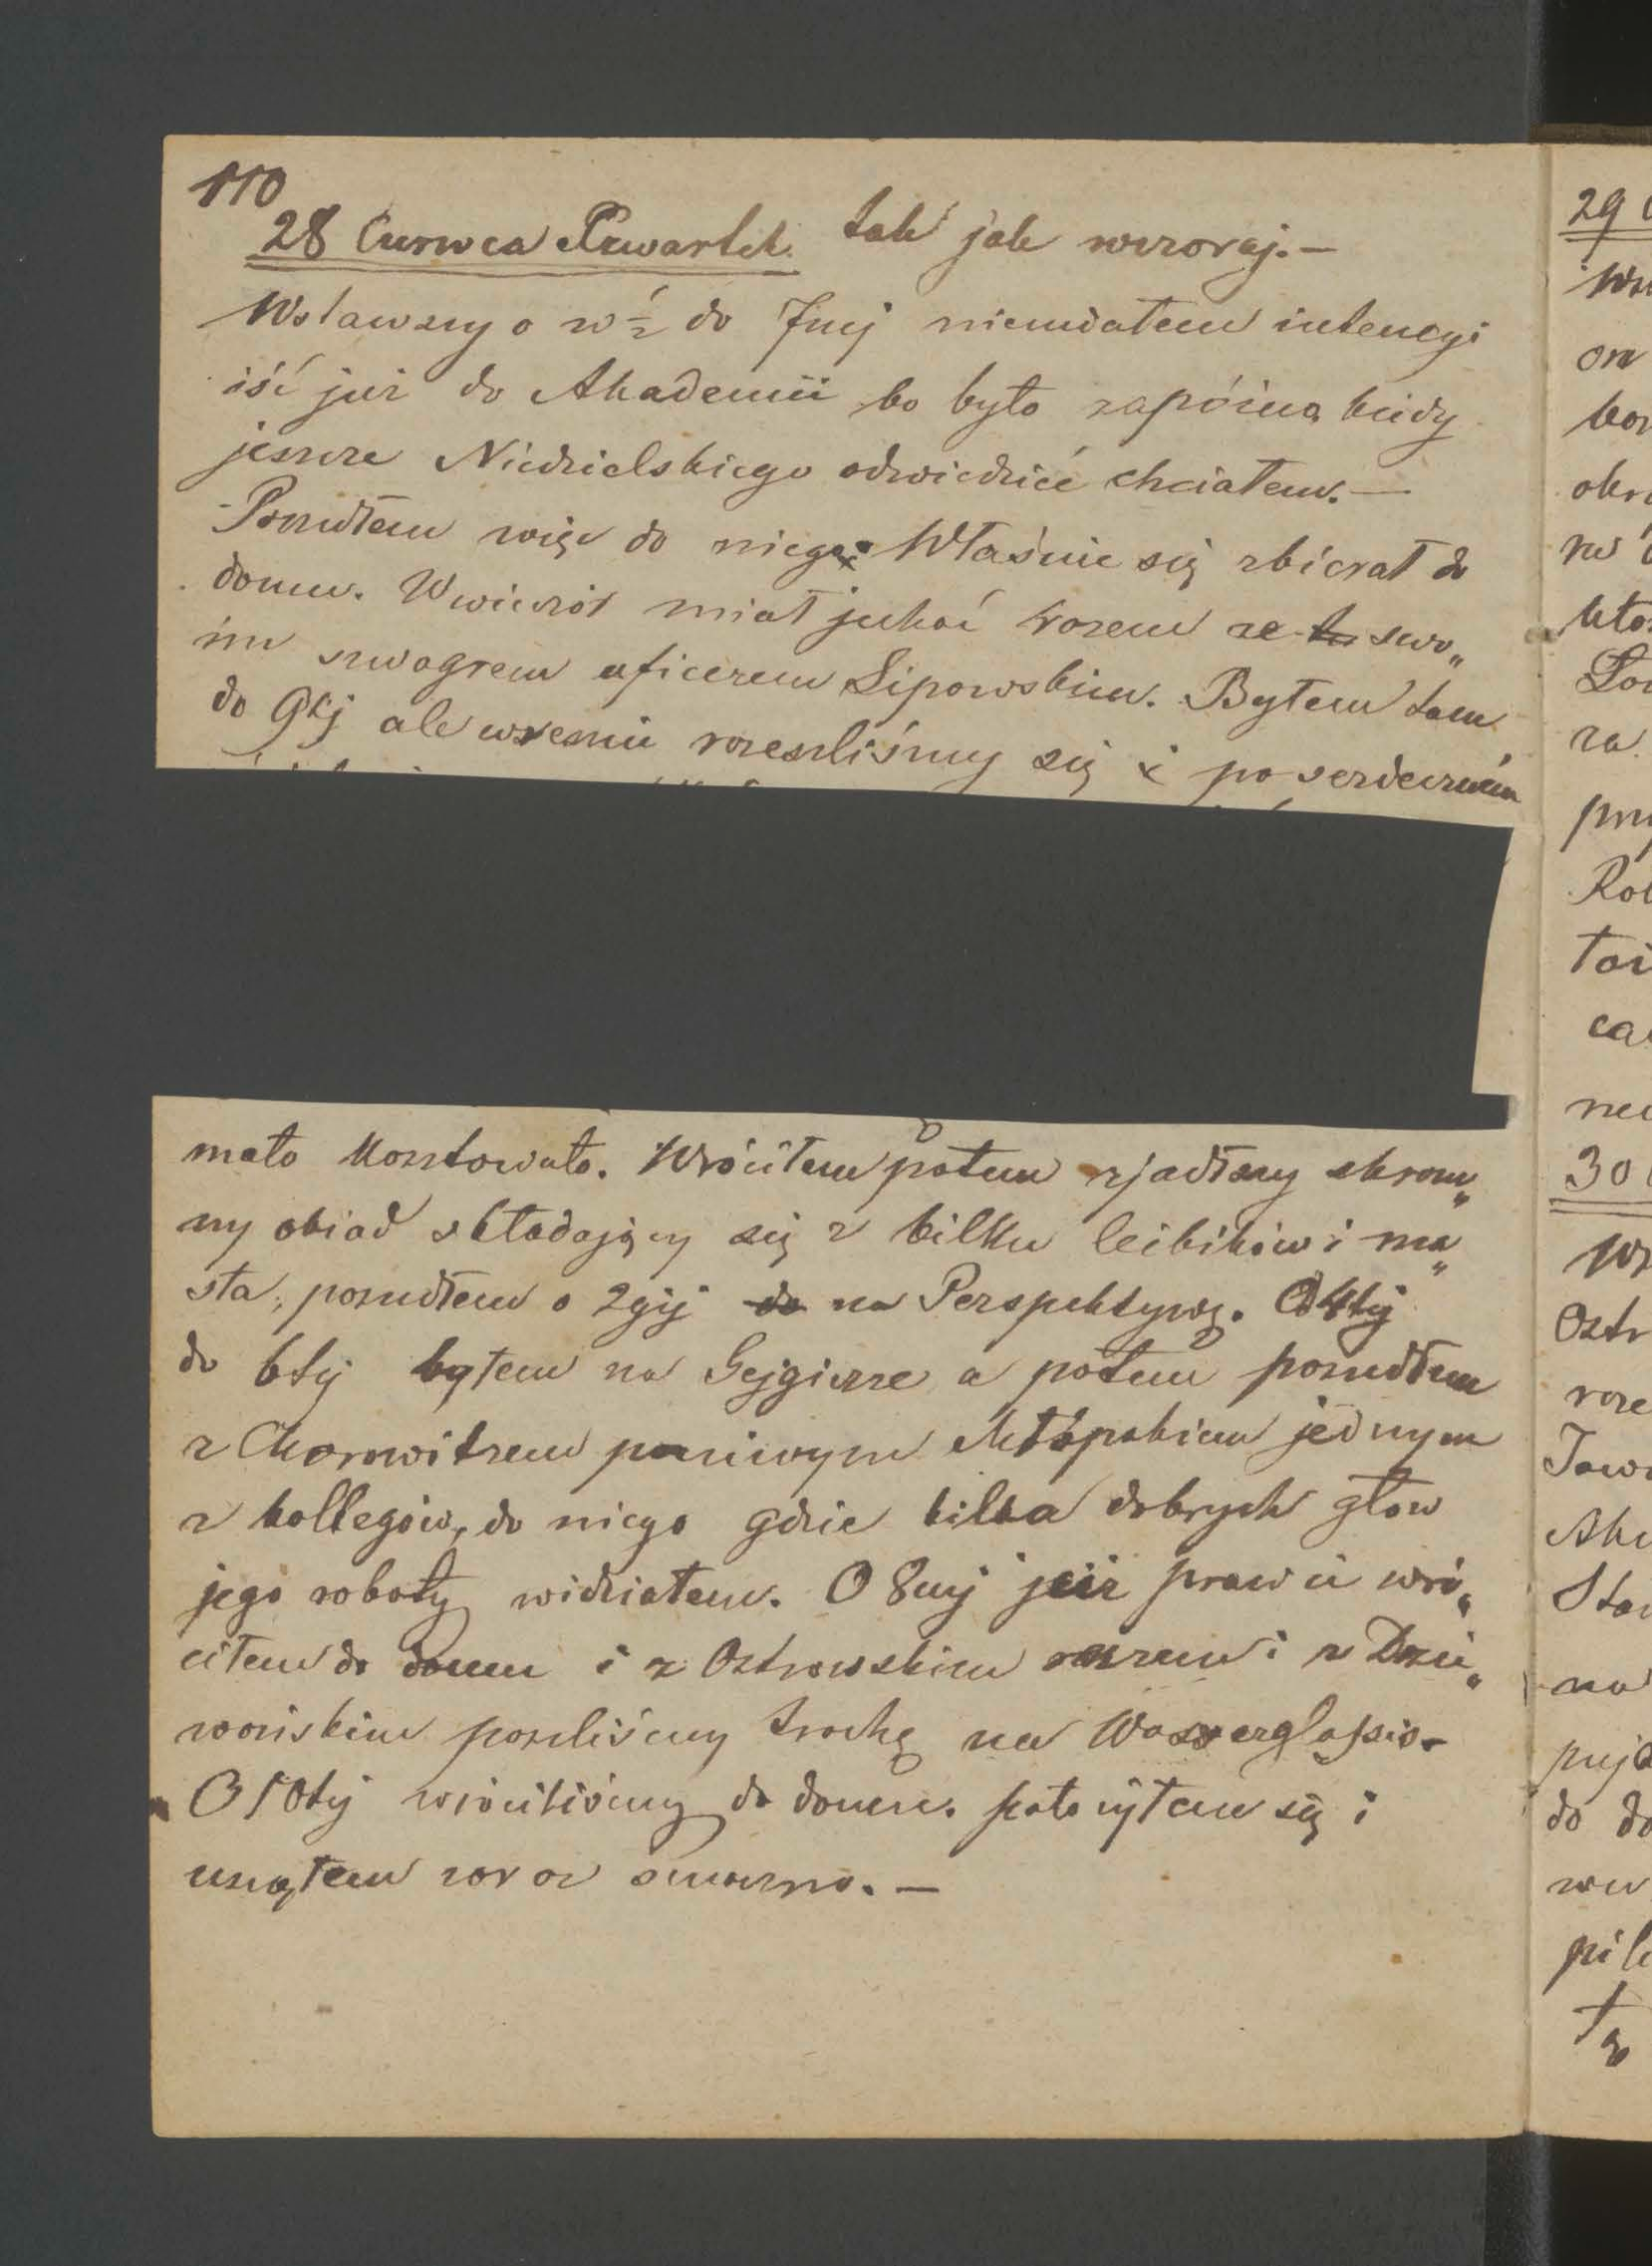 110
28 Czerwca Czwartek. tak jak wczoraj.—
Wstawszy o w ½ do 7mej niemiałem intencyi
iść już do Akademii bo było zapóźno, kiedy
jeszcze Niedzielskiego odwiedzić chciałem.—
Poszedłem więc do niego. Właśnie się zbierał do
domu. Wwieczór miał jechać razem ze swo„
im szwagrem oficerem Lipowskim. Byłem tam
do 9tej ale wreszcie rozeszliśmy się i po serdecznem
mało kosztowało. Wróciłem potem zjadłszy skrom„
ny obiad składający się z kilku leibików i ma„
sła, poszedłem o 2giej do na Perspektywę. Od 4tej
do 6tej byłem na Gejgierze a potem poszedłem
z Horowitzem poczciwym chłopakiem jednym
z kollegów, do niego gdzie kilka dobrych głów
jego roboty widziałem. O 8mej już prawie wró„
ciłem do domu i z Ostrowskim razem i z Dzie„
wońskim poszliśmy trochę na Wasserglassis.
O 10tej wróciliśmy do domu. położyłem się i
usnąłem zaraz smaczno.—
29
on
30